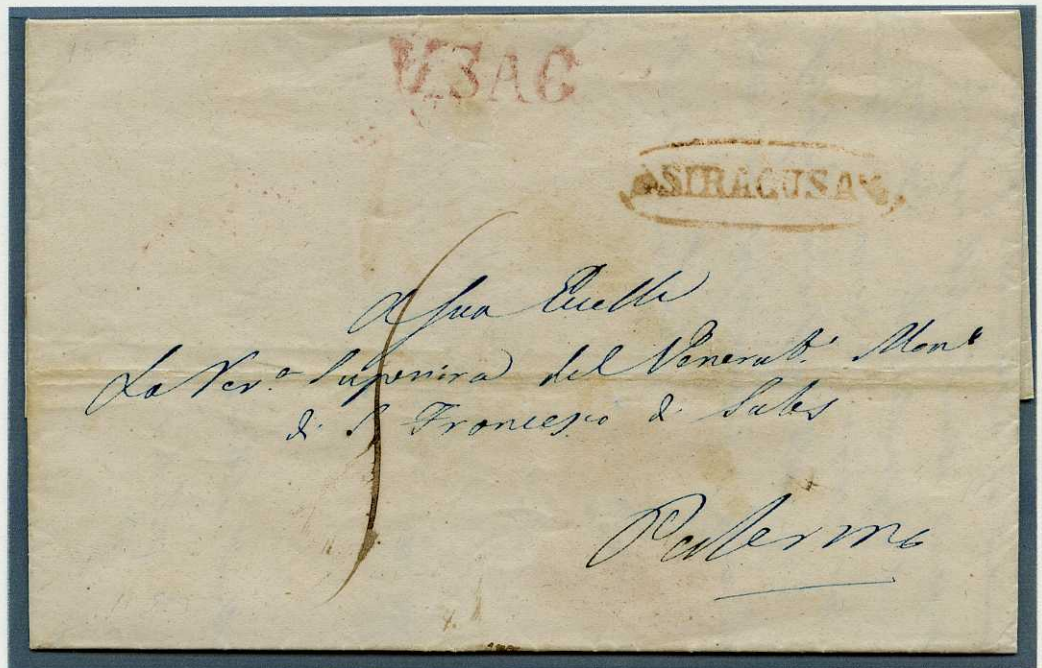 SIRACUSA
A Sua Eccell
La Ver.a Superiora del Venerab. Mon.
di S. Francesco di Sales
Palermo